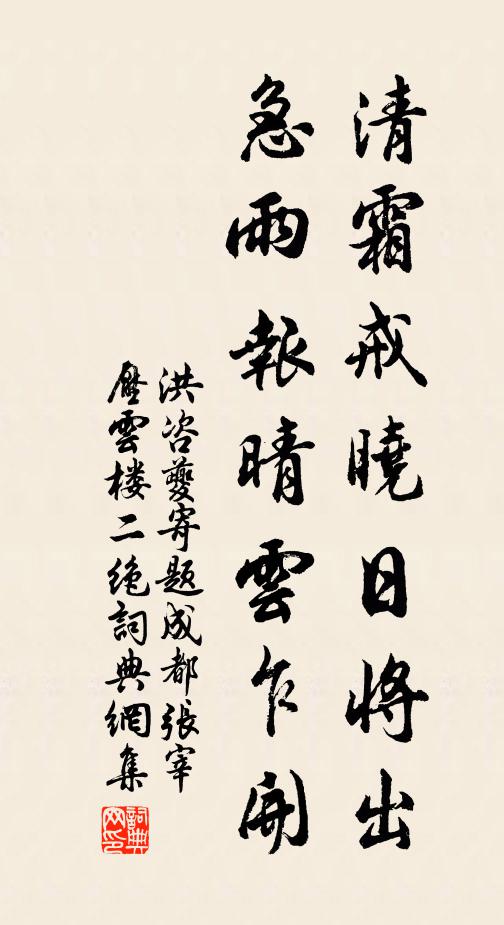 清霜戒曉日將出
急雨報晴雲乍開
洪咨夔寄题成都張宰
壓雲楼二絶詞典網集
詞典网印